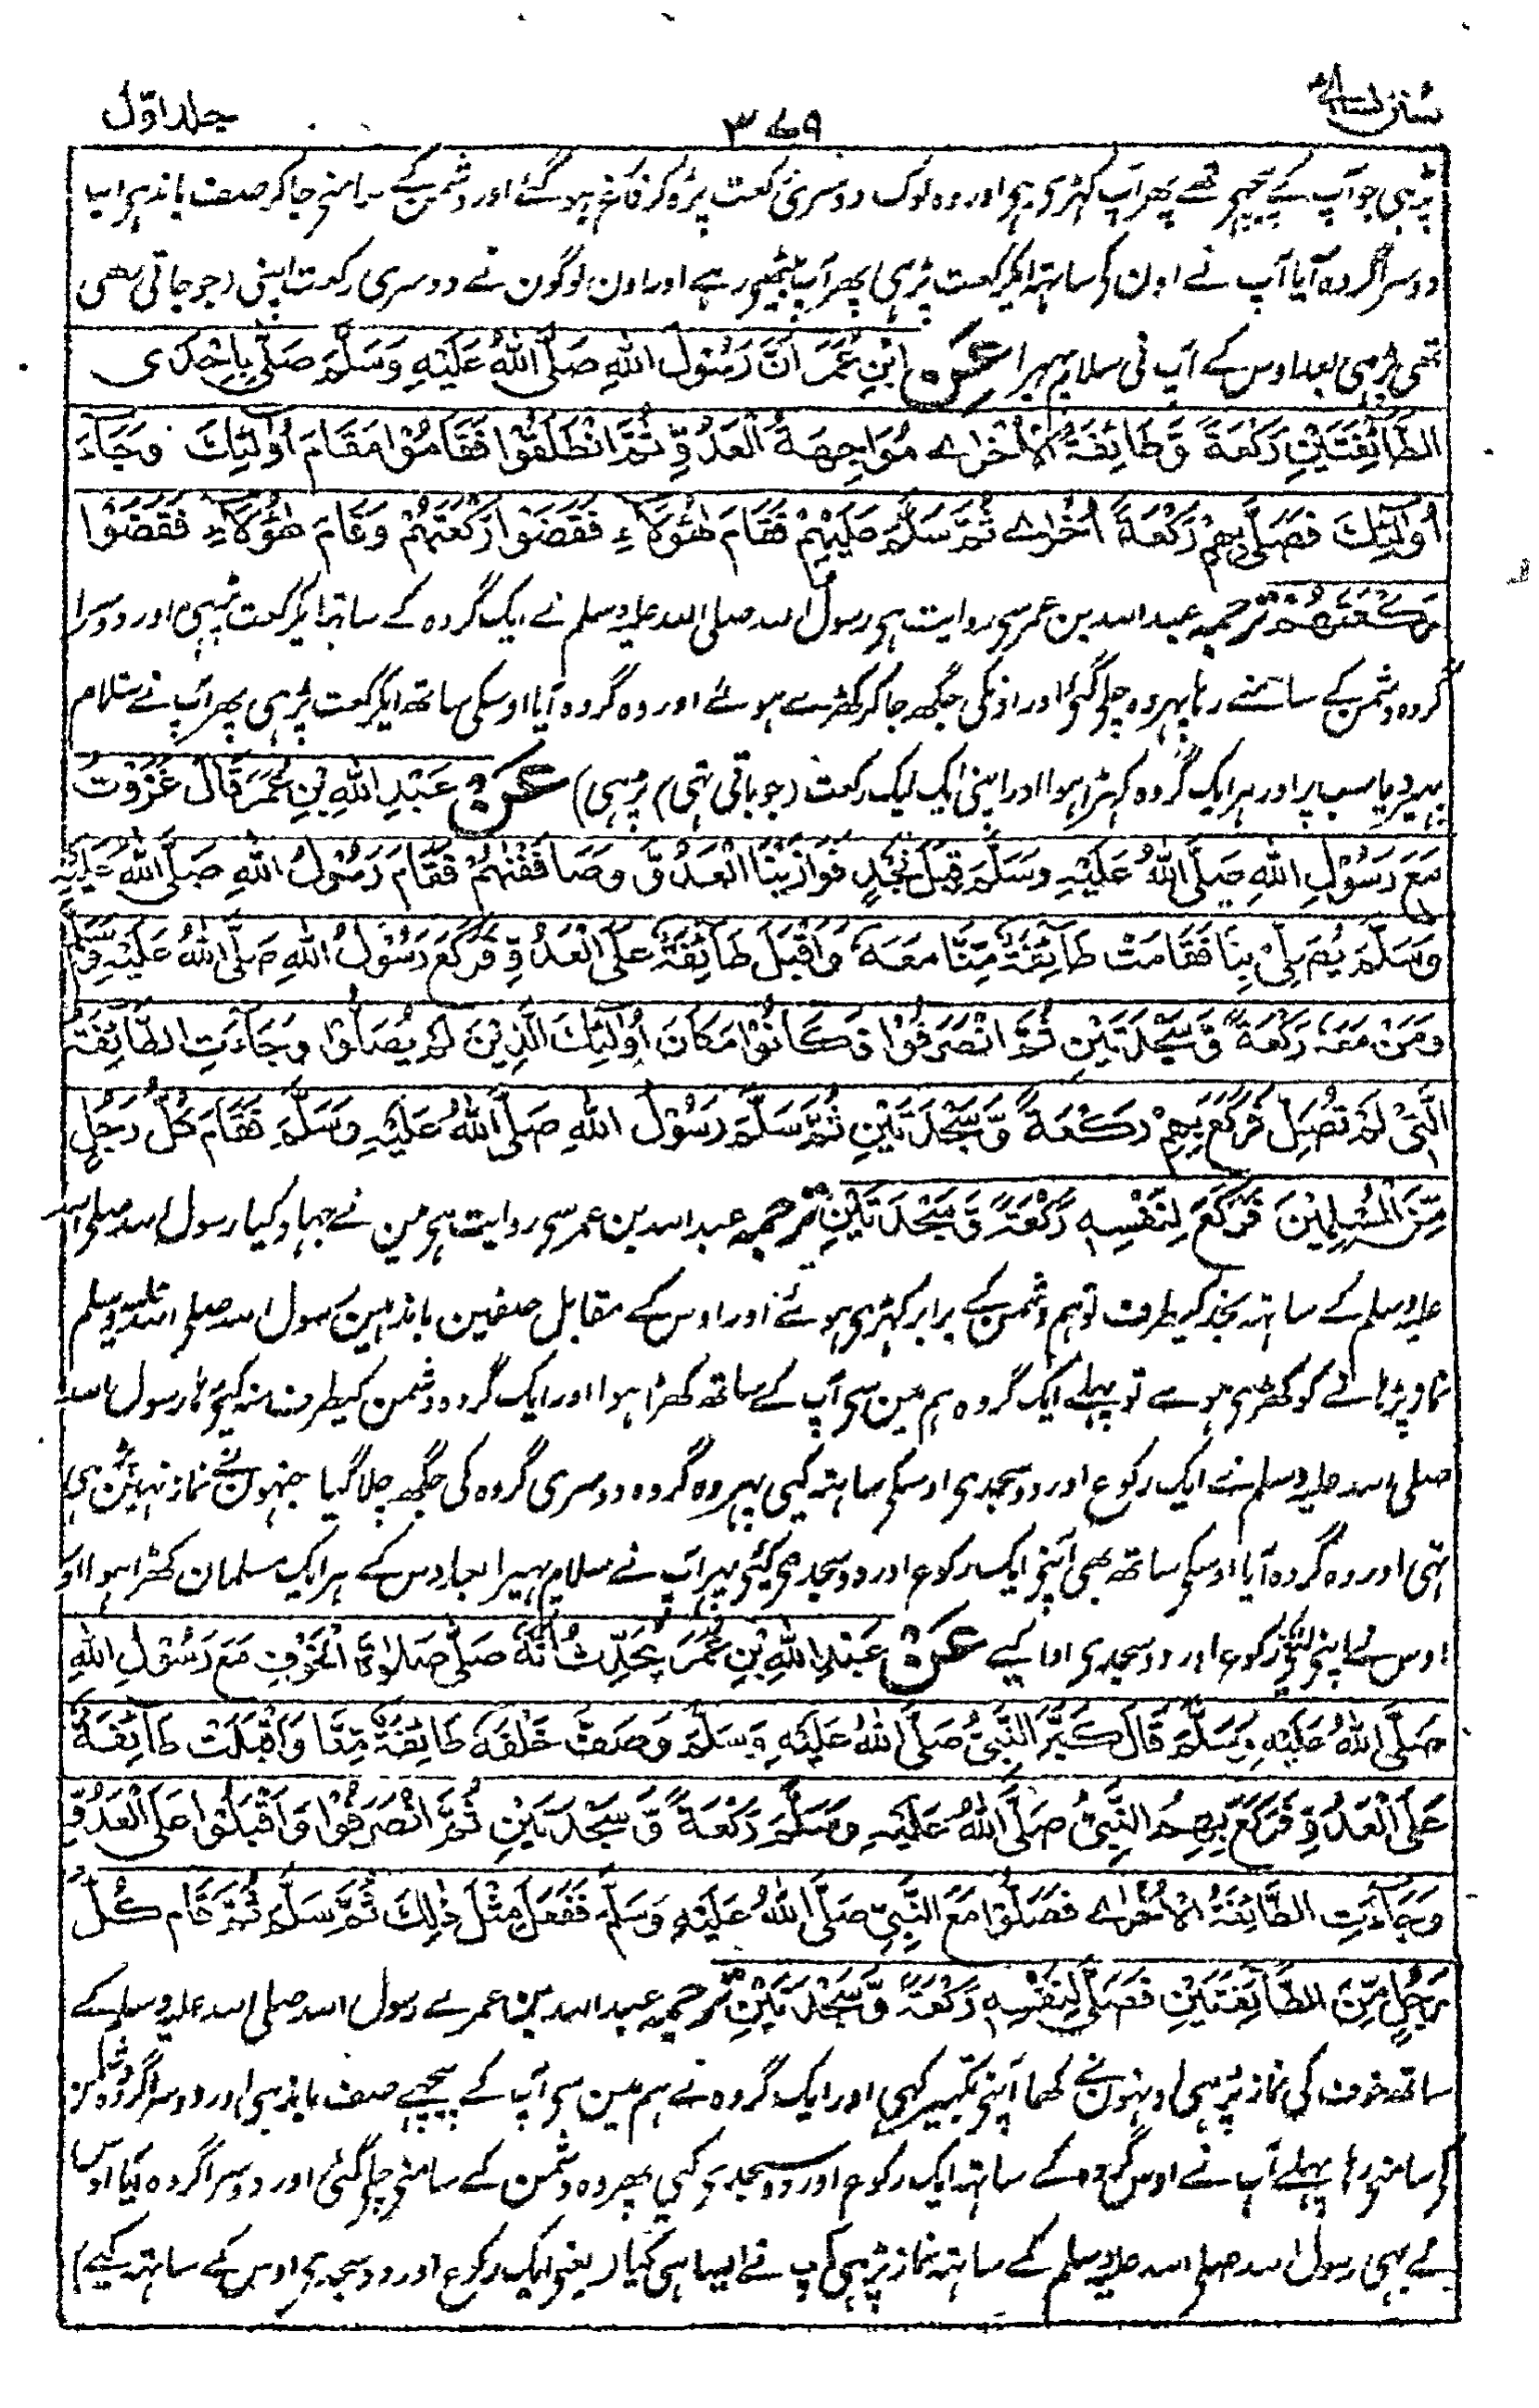 سنن نسائی
۳۷۹
جلد اوّل
پڑہی جو آپ کے پیچہے تھے پھر آپ کہڑی رہی اور وہ لوگ دوسری رکعت پڑہ کر فارغ ہو گئے اور دشمن کے سامنے جا کر صف باندہی اسپا
دوسرا گروہ آیا آپ نے اون کی ساتہہ ایک رکعت پڑہی پھر آپ بیٹھی رہے اور اون لوگون نے دوسری رکعت اپنی (جو جاتی رہی
تھی پڑہی بعد اوس کے آپ نی سلام پہیرا عَنْ ابْنِ عُمَرَ اَنَّ رَسُوْلَ اللهِ صَلَّى اللهُ عَلَيْهِ وَسَلَّمَ صَلّٰى بِاِحْدَى
الطَّائِفَتَيْنِ رَكْعَةً وَّطَائِفَةُ الْاُخْرٰى مُوَاجِهَةُ الْعَدُوِّ ثُمَّ انْطَلَقُوْا فَقَامُوْا مَقَامَ اُولٰٓئِكَ وَجَآءَ
اُولٰٓئِكَ فَصَلّٰى بِهِمْ رَكْعَةً اُخْرٰى ثُمَّ سَلَّمَ عَلَيْهِمْ فَقَامَ هٰٓؤُلَآءِ فَقَضَوْا رَكْعَتَهُمْ وَقَامَ هٰٓؤُلَآءِ فَقَضَوْا
رَكْعَتَهُمْ ترجمہ عبد اللہ بن عمر سی روایت ہی رسول اللہ صلی اللہ علیہ وسلم نے ایک گروہ کے ساتہہ ایک رکعت پڑہی اور دوسرا
گروہ دشمن کے سامنے رہا پہر وہ چلی گئی اور اونکی جگھہ جا کر کھڑے ہوئے اور وہ گروہ آیا اوسکی ساتھ ایک رکعت پڑہی پھر آپ نے سلام
پہیر دیا سب پر اور ہر ایک گروہ کہڑا ہوا اور اپنی ایک ایک رکعت (جو باقی تہی) پڑہی) عَنْ عَبْدِ اللهِ بْنِ عُمَرَ قَالَ غَزَوْتُ
مَعَ رَسُوْلِ اللهِ صَلَّى اللهُ عَلَيْهِ وَسَلَّمَ قِبَلَ نَجْدٍ فَوَازَيْنَا الْعَدُوَّ وَصَافَفْنٰهُمْ فَقَامَ رَسُوْلُ اللهِ صَلَّى اللهُ عَلَيْهِ
وَسَلَّمَ يُصَلِّيْ بِنَا فَقَامَتْ طَآئِفَةٌ مِّنَّا مَعَهٗ وَاَقْبَلَ طَآئِفَةٌ عَلَى الْعَدُوِّ فَرَكَعَ رَسُوْلُ اللهِ صَلَّى اللهُ عَلَيْهِ وَسَلَّمَ
وَمَنْ مَعَهٗ رَكْعَةً وَّسَجْدَتَيْنِ ثُمَّ انْصَرَفُوْا فَكَانُوْا مَكَانَ اُولٰٓئِكَ الَّذِيْنَ لَمْ يُصَلُّوْا وَجَآءَتِ الطَّآئِفَةُ
الَّتِيْ لَمْ تُصَلِّ فَرَكَعَ بِهِمْ رَكْعَةً وَّسَجْدَتَيْنِ ثُمَّ سَلَّمَ رَسُوْلُ اللهِ صَلَّى اللهُ عَلَيْهِ وَسَلَّمَ فَقَامَ كُلُّ رَجُلٍ
مِّنَ الْمُسْلِمِيْنَ فَرَكَعَ لِنَفْسِهٖ رَكْعَةً وَّسَجْدَتَيْنِ ترجمہ عبد اللہ بن عمر سی روایت ہی مین نے جہاد کیا رسول اللہ صلی اللہ
علیہ وسلم کے ساتہہ نجد کیطرف تو ہم دشمن کے برابر کہڑی ہوئے اور اوس کے مقابل صفین باندہین رسول اللہ صلی اللہ علیہ وسلم
نماز پڑہانے کو کھڑی ہوے تو پہلے ایک گروہ ہم مین سی آپ کے ساتھ کھڑا ہوا اور ایک گروہ دشمن کیطرف منہ کیی رہا رسول اللہ
صلی اللہ علیہ وسلم نے ایک رکوع اور دو سجدی اوسکی ساتہہ کیی پہر وہ گروہ دوسری گروہ کی جگھہ چلا گیا جنہون نے نماز نہین پڑہی
تہی اور وہ گروہ آیا اوسکی ساتھ بھی آپنی ایک رکوع اور دو سجدی کیئی پہر آپ نے سلام پہیرا بعد اوس کے ہر ایک مسلمان کھڑا ہوا اور
اوس نے اپنی لئی رکوع اور دو سجدی ادا کیے عَنْ عَبْدِ اللهِ بْنِ عُمَرَ يُحَدِّثُ اَنَّهٗ صَلّٰى صَلٰوةَ الْخَوْفِ مَعَ رَسُوْلِ اللهِ
صَلَّى اللهُ عَلَيْهِ وَسَلَّمَ قَالَ كَبَّرَ النَّبِيُّ صَلَّى اللهُ عَلَيْهِ وَسَلَّمَ وَصَفَّ خَلْفَهٗ طَآئِفَةٌ مِّنَّا وَاَقْبَلَتْ طَآئِفَةٌ
عَلَى الْعَدُوِّ فَرَكَعَ بِهِمُ النَّبِيُّ صَلَّى اللهُ عَلَيْهِ وَسَلَّمَ رَكْعَةً وَّسَجْدَتَيْنِ ثُمَّ انْصَرَفُوْا وَاَقْبَلُوْا عَلَى الْعَدُوِّ
وَجَآءَتِ الطَّآئِفَةُ الْاُخْرٰى فَصَلَّوْا مَعَ النَّبِيِّ صَلَّى اللهُ عَلَيْهِ وَسَلَّمَ فَفَعَلَ مِثْلَ ذٰلِكَ ثُمَّ سَلَّمَ ثُمَّ قَامَ كُلُّ
رَجُلٍ مِّنَ الطَّآئِفَتَيْنِ فَصَلّٰى لِنَفْسِهٖ رَكْعَةً وَّسَجْدَتَيْنِ ترجمہ عبد اللہ بن عمر نے رسول اللہ صلی اللہ علیہ وسلم کے
ساتھ خوف کی نماز پڑہی اونہون نے کھا آپنی تکبیر کہی اور ایک گروہ نے ہم مین سی آپ کے پیچہے صف باندہی اور دوسرا گروہ دشمن
کی سامنی رہا پہلے آپ نے اوس گروہ کے ساتہہ ایک رکوع اور دو سجدی کیی پھر وہ دشمن کے سامنی چلی گئی اور دوسرا گروہ آیا اوس
نے بہی رسول اللہ صلی اللہ علیہ وسلم کے ساتہہ نماز پڑہی آپ نے ایسا ہی کیا (یعنی ایک رکوع اور دو سجدی اوس کے ساتہہ کیے)